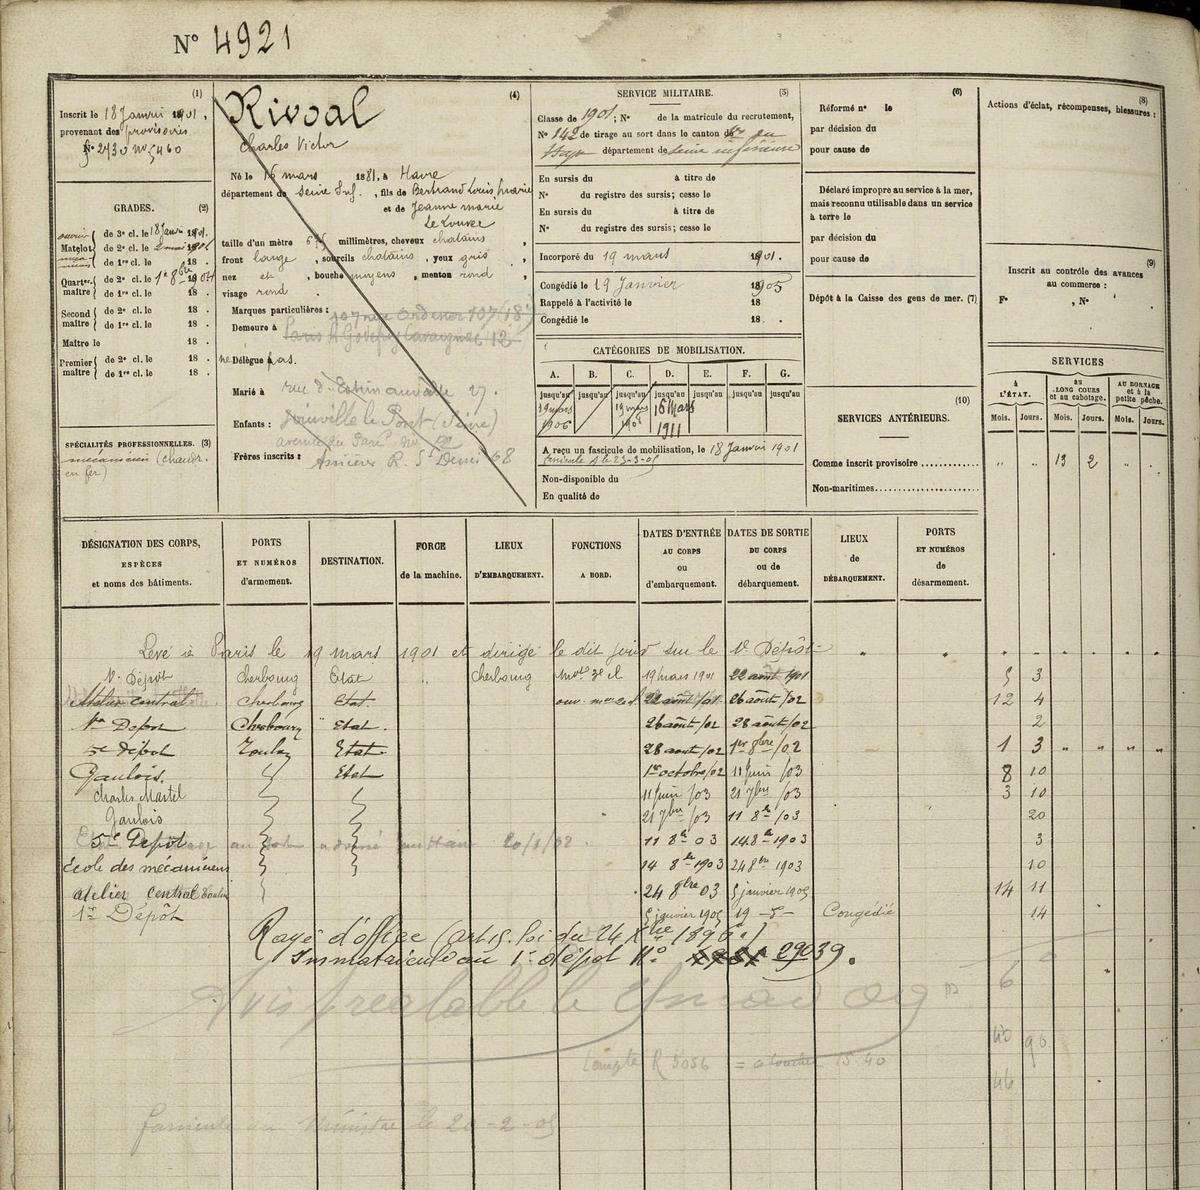 N° 4921
(1)
Inscrit le 18 Janvier 1901.
provenant des provisoires
f° 2730 n° 5460
(2)
GRADES.
ouvrier
Matelot
de 3e cl. le 18 Janv 1901.
de 2e cl. le 1901
de 1re cl. le 18 .
Quartier-maître
de 2e cl. le 1er 8bre 1904
de 1re cl. le 18 .
Second maître
de 2e cl. le 18 .
de 1re cl. le 18 .
Maître le 18 .
Premier maître
de 2e cl. le 18 .
de 1re cl. le 18 .
SPÉCIALITÉS PROFESSIONNELLES. (3)
mécanicien (chaudr.
en fer)
(4)
Rivoal
Charles Victor
Né le 16 mars 1881, à Havre
département de Seine Inf. , fils de Bertrand Louis Marie
et de Jeanne Marie
Le
taille d'un mètre 675 millimètres, cheveux chatains ,
front large , sourcils chatains , yeux gris ,
nez et , bouche moyens , menton rond ,
visage rond .
Marques particulières :
107 rue Ordener 107 (18e)
Demeure à Paris R Godefroy Cavaignac 12
ne Délègue pas.
Marié à rue d' 27.
Enfants : le Pont (Seine)
avenue de Paris n°
Frères inscrits : Asnières R. St Denis 68
SERVICE MILITAIRE. (5)
Classe de 1901 ; N° de la matricule du recrutement,
N° 142 de tirage au sort dans le canton du
département de Seine inférieure
En sursis du à titre de
N° du registre des sursis; cesse le
En sursis du à titre de
N° du registre des sursis; cesse le
Incorporé du 19 mars 1901.
Congédié le 19 Janvier 1905
Rappelé à l'activité le 18
Congédié le 18 .
CATÉGORIES DE MOBILISATION.
A. B. C. D. E. F. G.
jusqu'au jusqu'au jusqu'au jusqu'au jusqu'au jusqu'au jusqu'au
19 mars 1906
19 mars 190
16 Mars 1911
A reçu un fascicule de mobilisation, le 18 Janvier 1901
fascicule A le 23-3-05
Non-disponible du
En qualité de
(6)
Réformé n° le
par décision du
pour cause de
Déclaré impropre au service à la mer,
mais reconnu utilisable dans un service
à terre le
par décision du
pour cause de
Dépôt à la Caisse des gens de mer. (7)
(10)
SERVICES ANTÉRIEURS.
Comme inscrit provisoire ............ " " 13 2 " .
Non-maritimes......................
(8)
Actions d'éclat, récompenses, blessures :
(9)
Inscrit au contrôle des avances
au commerce :
F° , N°
SERVICES
à L'ÉTAT.
au LONG COURS et au cabotage.
AU BORNAGE et à la petite pêche.
Mois. Jours. Mois. Jours. Mois. Jours.
DÉSIGNATION DES CORPS, ESPÈCES et noms des bâtiments.
PORTS ET NUMÉROS d'armement.
DESTINATION.
FORCE de la machine.
LIEUX D'EMBARQUEMENT.
FONCTIONS A BORD.
DATES D'ENTRÉE AU CORPS ou d'embarquement.
DATES DE SORTIE DU CORPS ou de débarquement.
LIEUX de DÉBARQUEMENT.
PORTS ET NUMÉROS de désarmement.
Levé à Paris le 19 mars 1901 et dirigé le dit jour sur le 1er Dépôt
1er Dépôt Cherbourg Etat " Cherbourg 19 mars 1901 22 août 1901 5 3
Atelier central Cherbourg Etat. 22 août /01 26 août /02 12 4
1er Depot Cherbourg Etat. 26 août /02 28 août /02 2
5e dépot Toulon Etat 28 août /02 1er 8bre /02 1 3
Gaulois. Etat 1er octobre /02 11 Juin /03 8 10
Charles Martel 11 Juin /03 21 7bre /03 3 10
Gaulois 21 7bre /03 11 8bre /03 20
5e Depot 11 8bre 03 14 8bre 1903 3
Ecole des mécaniciens 14 8bre 1903 24 8bre 1903 10
atelier central Toulon 24 8bre 03 5 janvier 1905 14 11
1er Dépôt 5 janvier 1905 19 -5- Congédié 14
Rayé d'office (art. 5. loi du 24 Xbre 1896.)
Immatriculé au 1er dépôt N° 29039.
Avis préalable le
Compte R 5056 = à toucher 15.40
6
45 96
46
fascicule au Ministre le 20-2-05